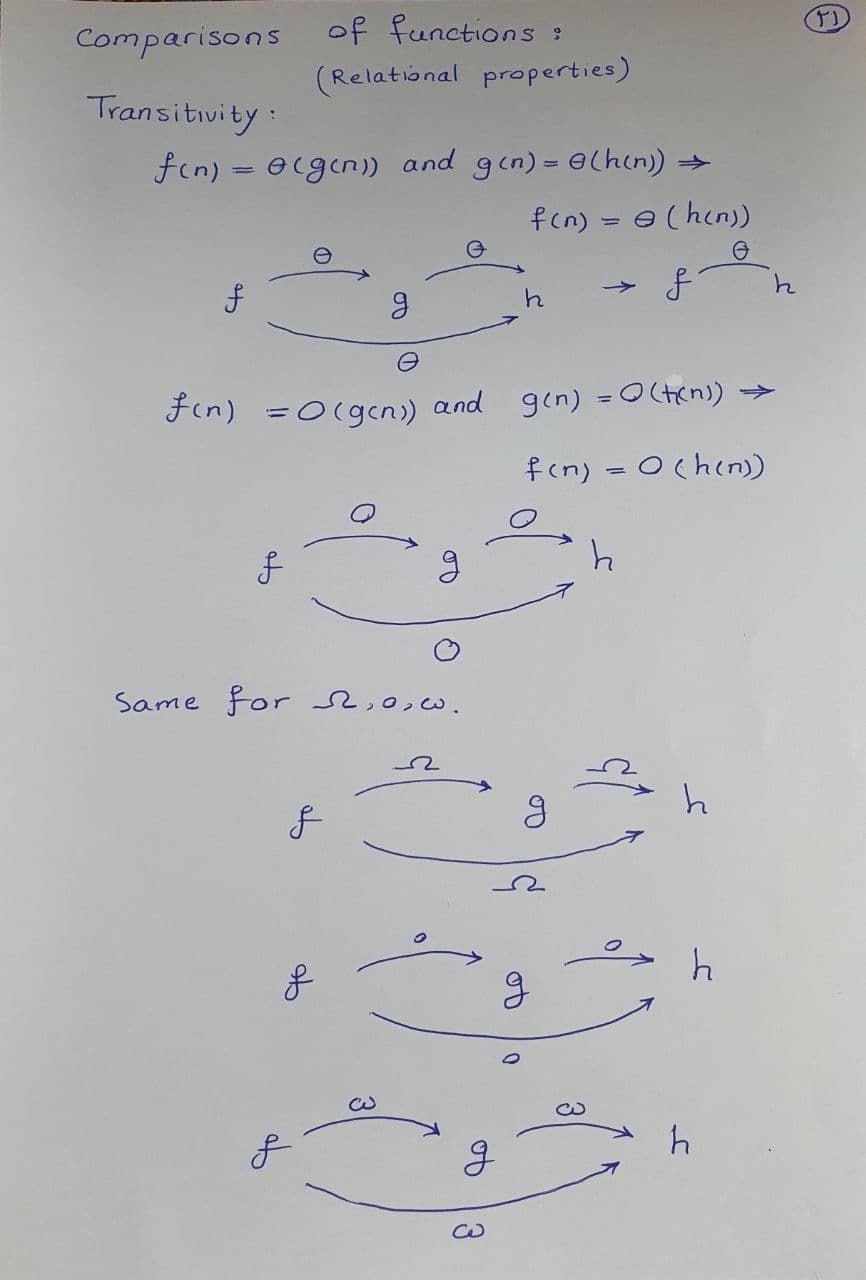 ۲۱
Comparisons of functions :
(Relational properties)
Transitivity :
f(n) = Θ(g(n)) and g(n) = Θ(h(n)) ⇒
f(n) = Θ(h(n))
Θ Θ Θ
f g h → f h
Θ
f(n) = O(g(n)) and g(n) = O(h(n)) ⇒
f(n) = O(h(n))
O O
f g h
O
Same for Ω, o, ω.
Ω Ω
f g h
Ω
o o
f g h
o
ω ω
f g h
ω